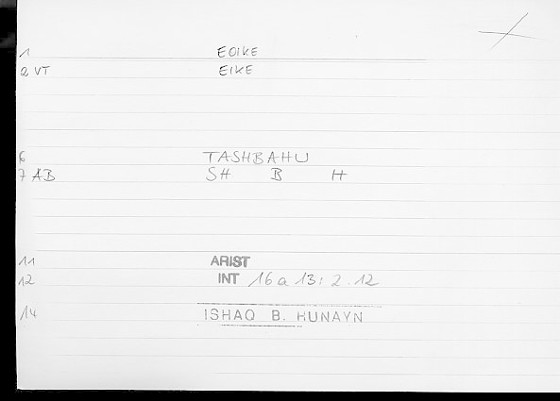 1 EOIKE
2 VT EIKE
6 TASHBAHU
7 AB SH B H
11 ARIST
12 INT 16a13: 2.12
14 ISHAQ B. HUNAYN